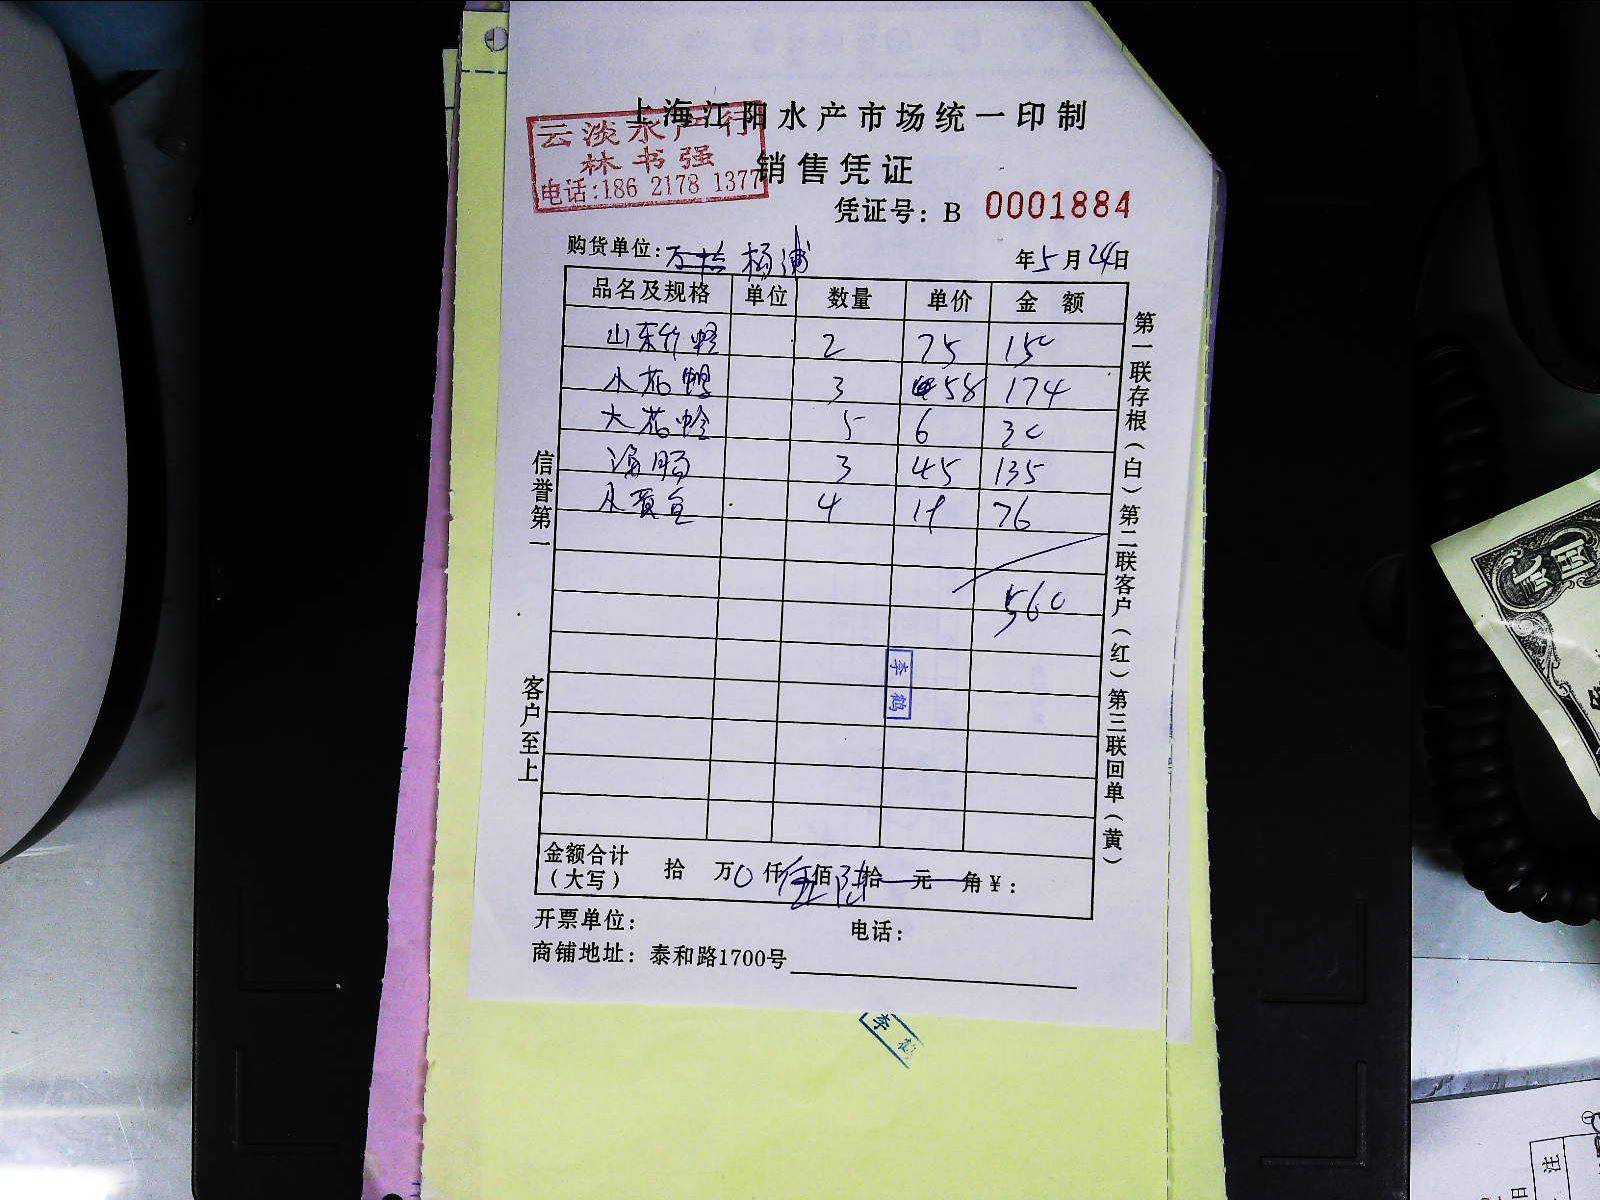 上海江阳水产市场统一印制
云淡水产行
林书强
电话:186 2178 1377
销售凭证
凭证号: B 0001884
购货单位: 杨浦 年5月24日
品名及规格 单位 数量 单价 金额
山东竹蛏 2 75 150
小花 3 58 174
大花蛤 5 6 30
海肠 3 45 135
小黄鱼 4 19 76
560
李鹤
信誉第一
客户至上
第一联存根(白)第二联客户(红)第三联回单(黄)
金额合计(大写) 拾 万0仟伍佰陆拾 元 角¥:
开票单位: 电话:
商铺地址: 泰和路1700号
李鹤
贰圆
注
日